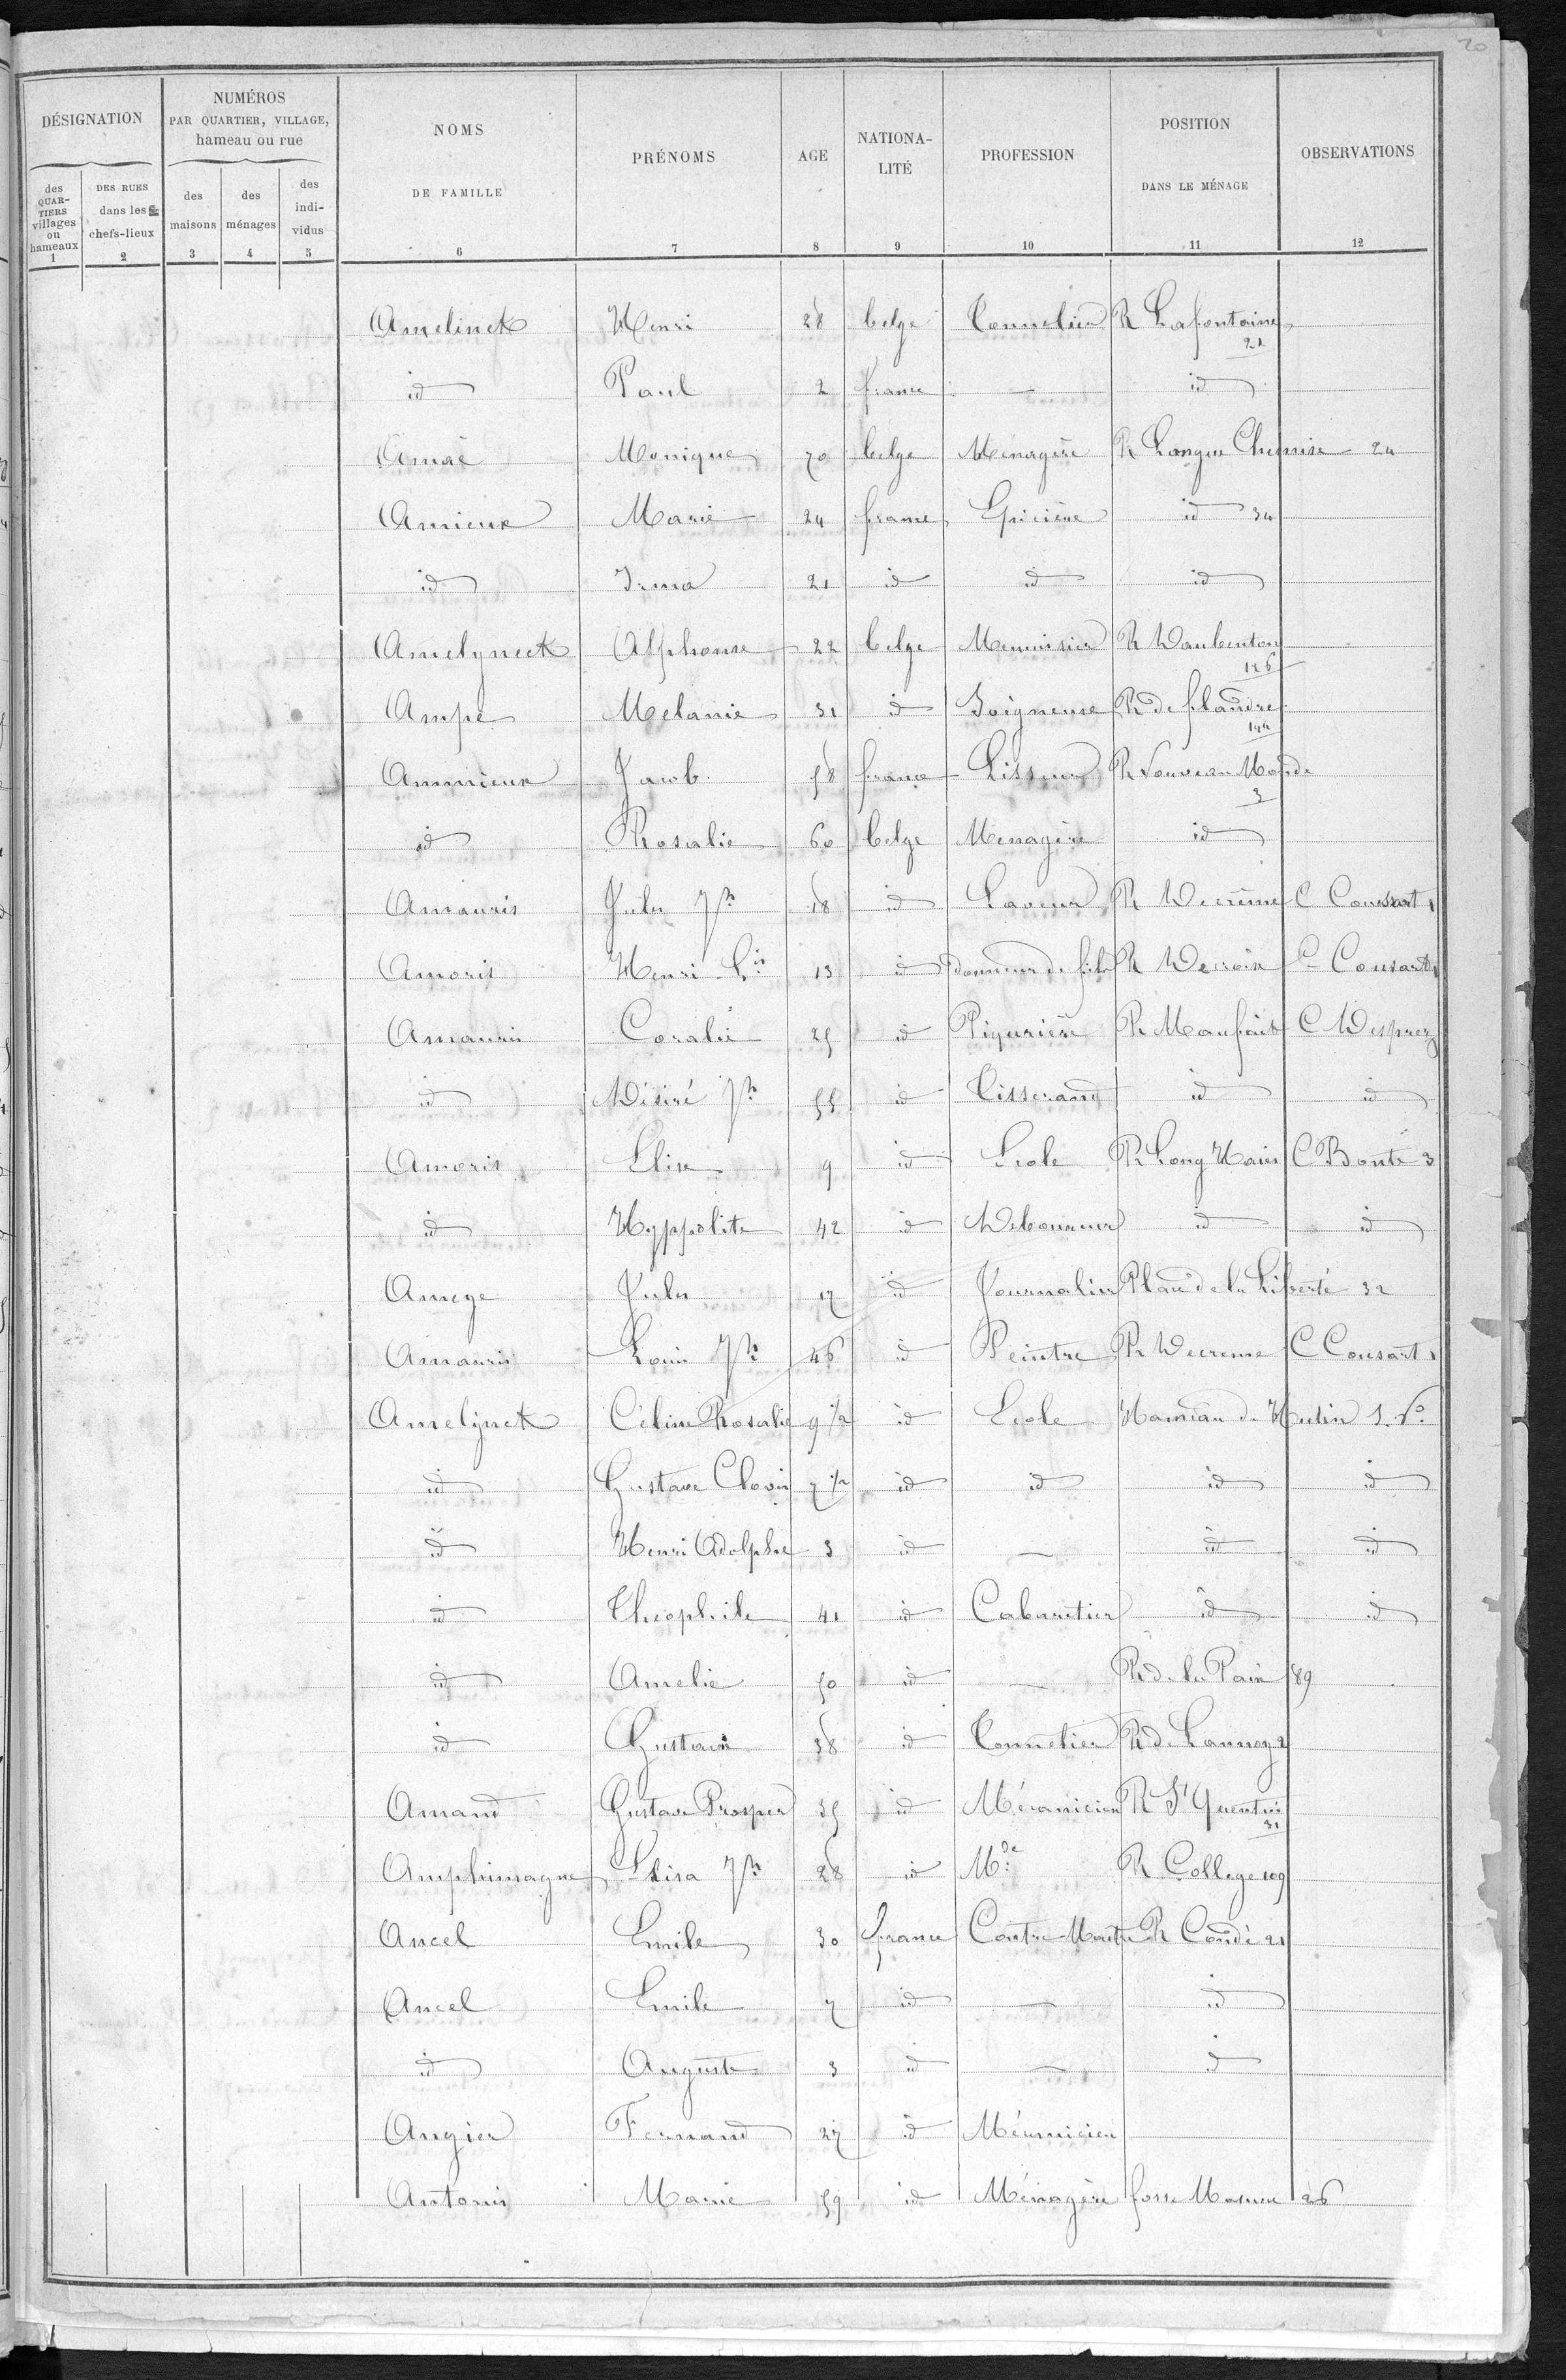 20
DÉSIGNATION
NUMÉROS
PAR QUARTIER, VILLAGE,
hameau ou rue
NOMS
DE FAMILLE
PRÉNOMS
AGE
NATIONA-
LITÉ
PROFESSION
POSITION
DANS LE MÉNAGE
OBSERVATIONS
des
QUAR-
TIERS
villages
ou
hameaux
DES RUES
dans les
chefs-lieux
des
maisons
des
ménages
des
indi-
vidus
1 2 3 4 5 6 7 8 9 10 11 12
Amelinck Henri 28 belge Tonnelier R Lafontaine
21
id Paul 2 france — id
Amaé Monique 70 belge Ménagère R Longue Chemise 24
Amieux Marie 24 france Epicière id 34
id Irma 21 id id id
Amelynck Alphonse 22 belge Menuisier R Daubenton
126
Ampe Melanie 31 id Soigneuse R de flandre
144
Ammieux Jacob 58 france Lisseur R Nouveau Monde
3
id Rosalie 60 belge Menagère id
Amauris Jules Jh 18 id Laveur R Decrême C Coussart 1
Amoris Henri Lis 13 id donneur de fils R Decrême C Cousart 1
Amauris Coralie 25 id Piqurière R Maufait C Desprez
id Désiré Jh 55 id Tisserand id id
Amoris Elise 9 id Ecole R Long Haies C Bonte 3
id Hyppolite 42 id Debourreur id id
Amege Jules 17 id Journalier Place de la Liberté 32
Amauris Louis Jh 46 id Peintre R Decreme C Cousart 1
Amelynck Céline Rosalie 9 1/2 id Ecole Hameau du Hutin S. No
id Gustave Clovis 7 1/2 id id id id
id Henri Adolphe 3 id — id id
id Theophile 41 id Cabaretier id id
id Amelie 50 id — R de la Paix 89
id Gustave 38 id Tonnelier R de Lannoy 2
Amand Gustave Prosper 35 id Mécanicien R St Quentin
31
Amphimagne Elisa Jh 28 id Mde R College 109
Ancel Emile 30 france Contre-Maitre R Condé 21
Ancel Emile 7 id — id
id Auguste 3 id — id
Angier Fernand 27 id Mécanicien
Antonis Marie 59 id Ménagère fosse 26